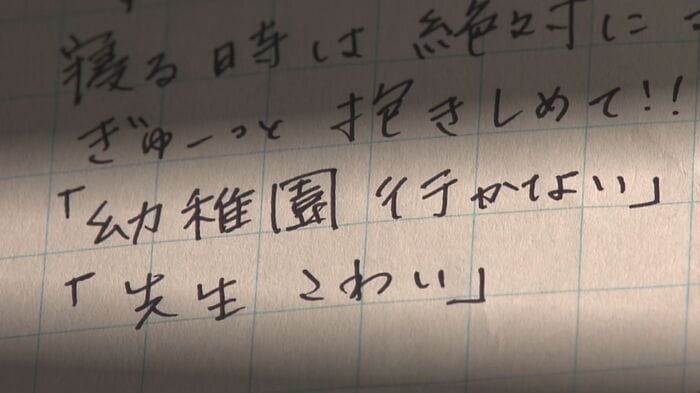 寝る時は絶対に
ぎゅーっと 抱きしめて!!
「幼稚園 行かない」
「先生 こわい」